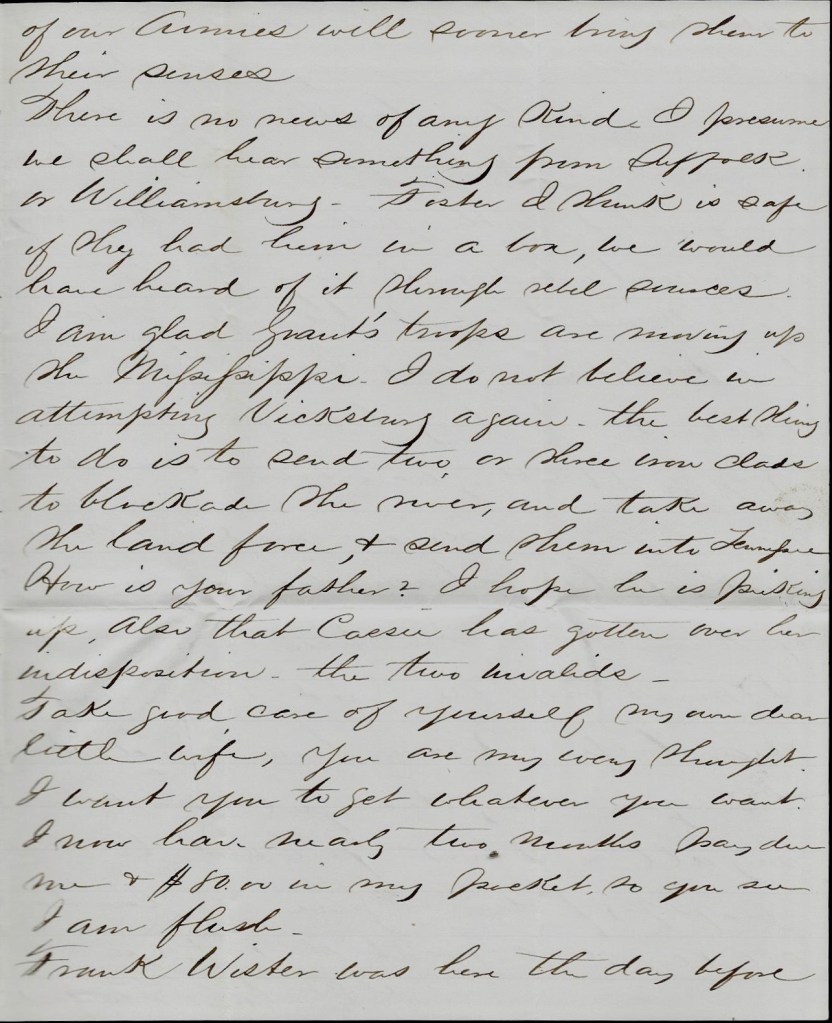 of our Armies will sooner bring them to
their senses
There is no news of any kind. I presume
we shall hear something from Suffolk
or Williamsburg - Foster I think is safe
if they had him in a box, we would
have heard of it through rebel sources.
I am glad Grant's troops are moving up
the Mississippi - I do not believe in
attempting Vicksburg again - the best thing
to do is to send two, or three iron clads
to blockade the river, and take away
the land force, & send them into Tennessee
How is your father? I hope he is picking
up, also that Cassie has gotten over her
indisposition - the two invalids -
Take good care of yourself my own dear
little wife, you are my every thought.
I want you to get whatever you want.
I now have nearly two months pay due
me & $80.00 in my pocket, so you see
I am flush -
Frank Wister was here the day before